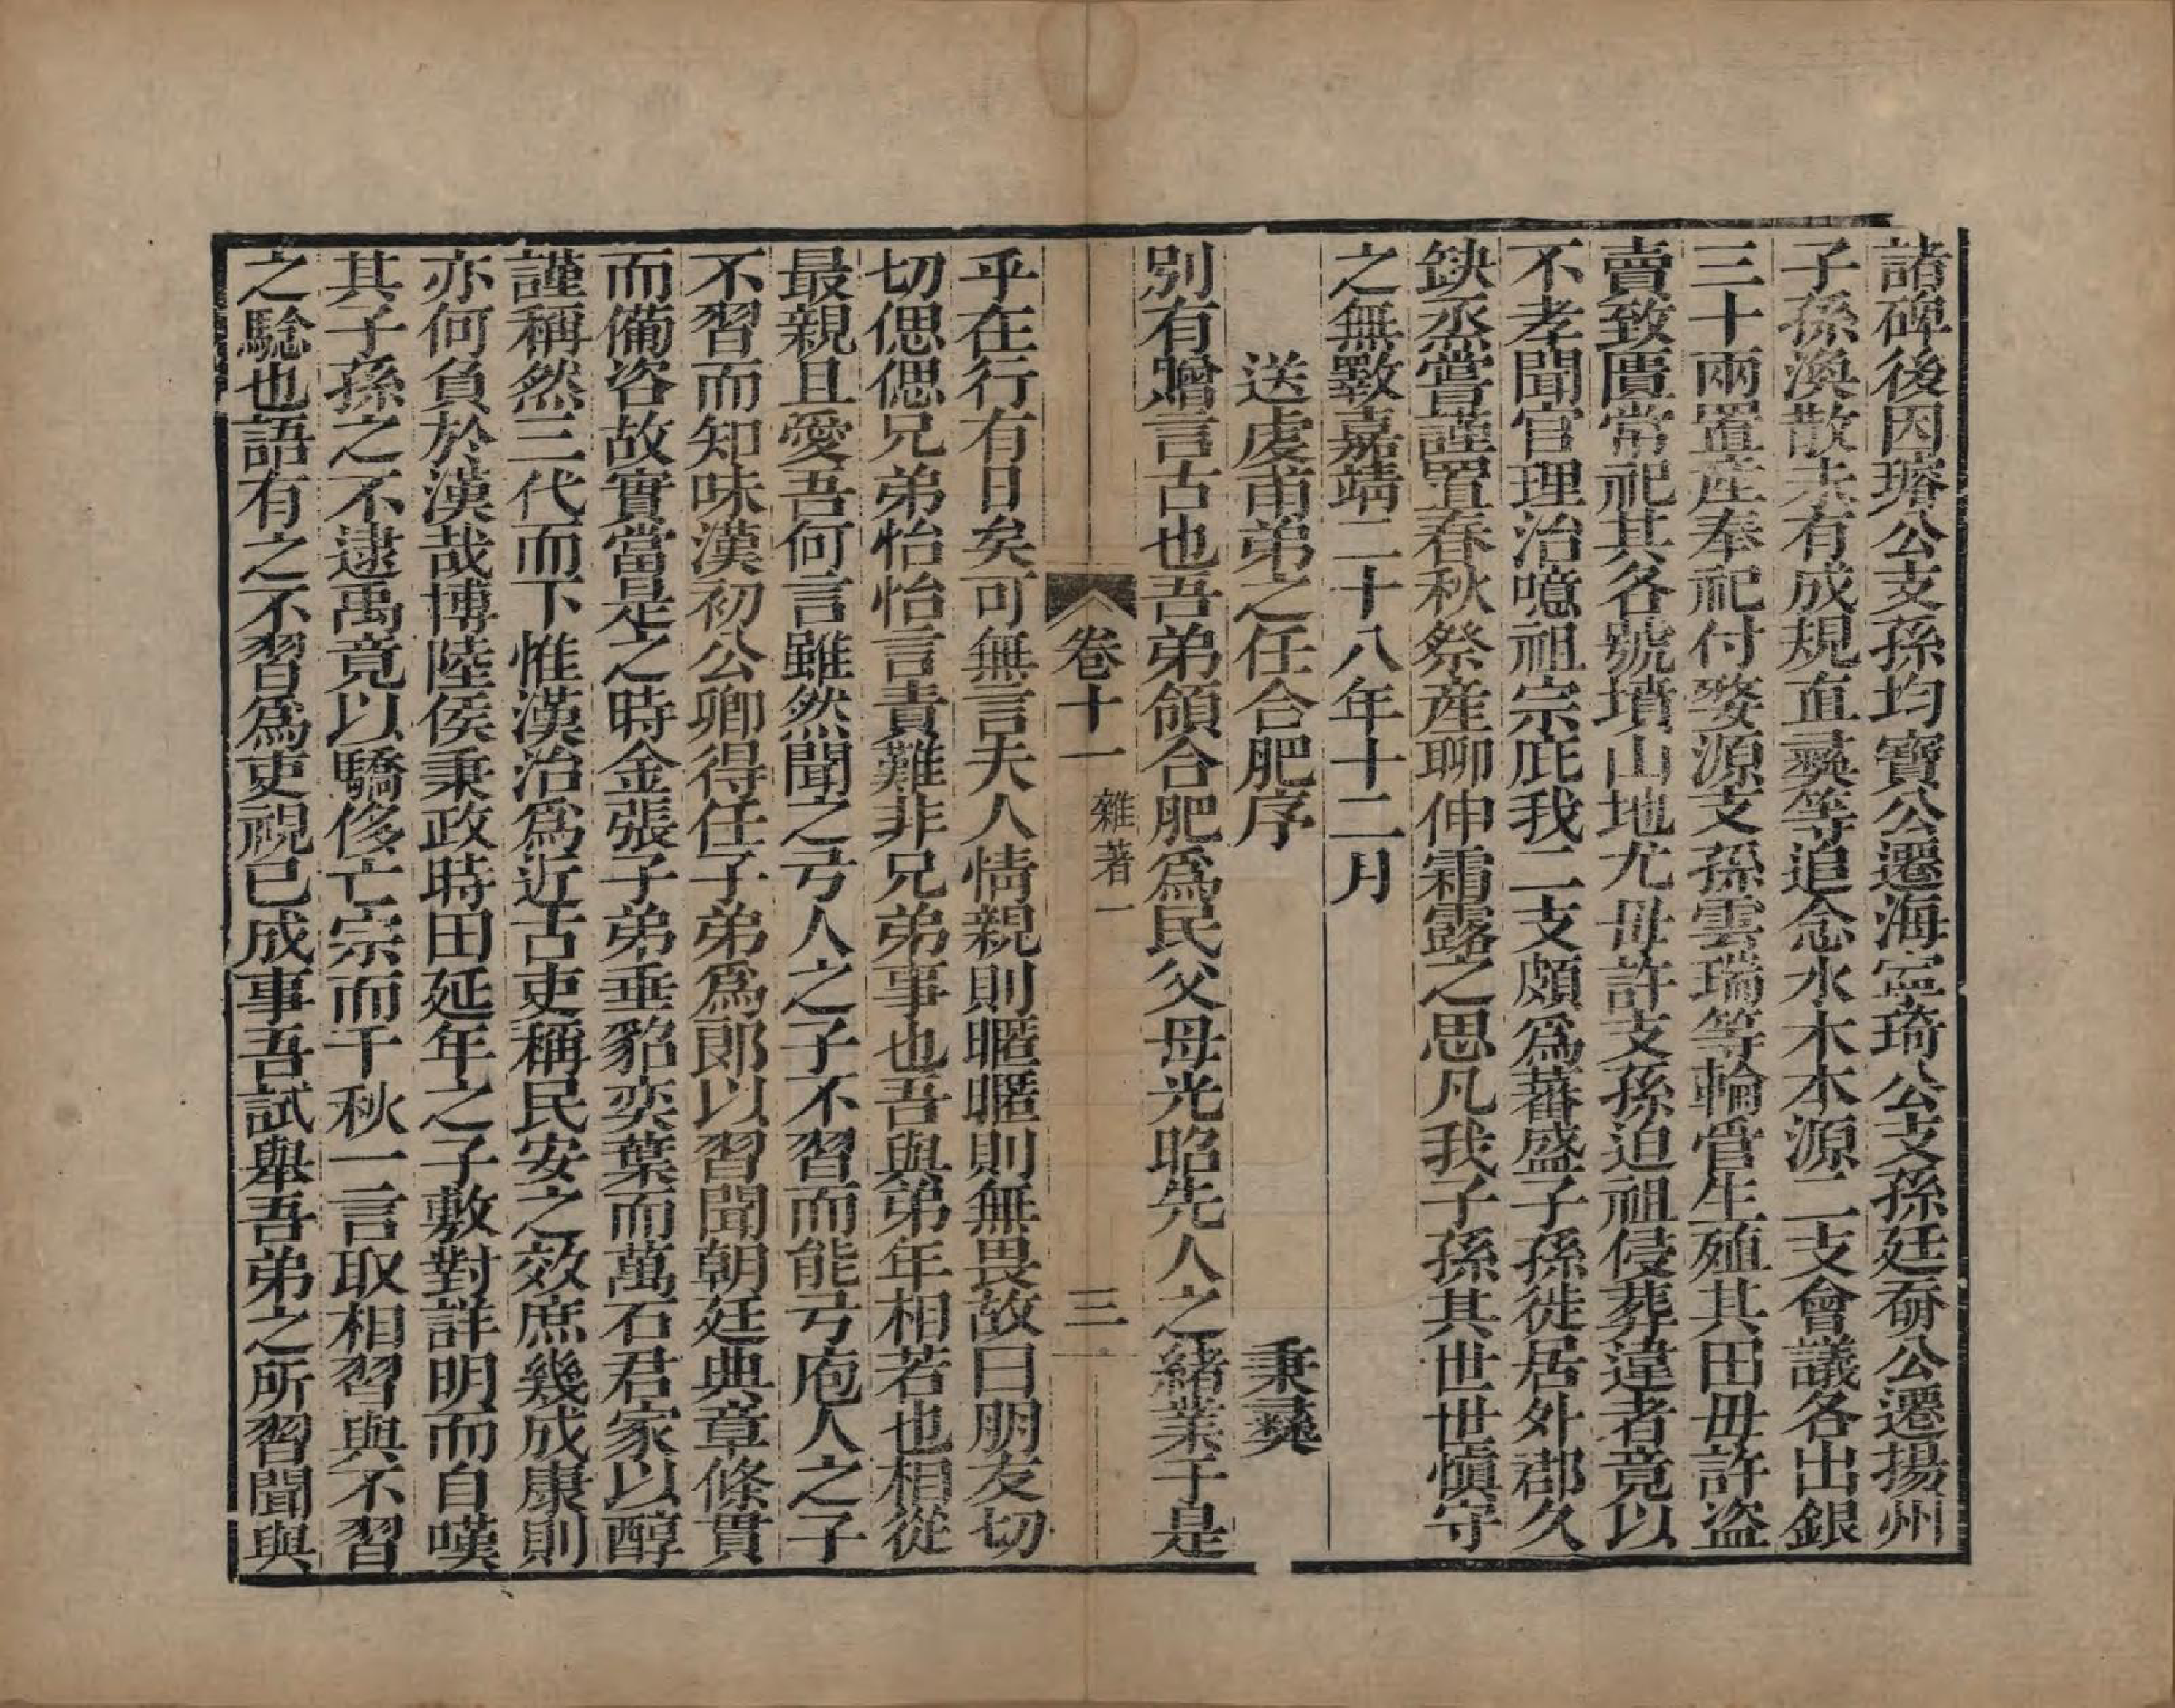 諸碑後因璿公支孫均寶公遷海寍琦公支孫廷奟公遷揚州
子孫渙散未有成規直彞等追念水木本源二支會議各出銀
三十兩置産奉祀付婺源支孫雲瑞等輪管生殖其田毋許盜
賣致匱常祀其各號墳山地尤毋許支孫迫祖侵葬違者竟以
不孝聞官理治噫祖宗庇我二支頗爲蕃盛子孫徙居外郡久
缺烝嘗謹置春秋祭産聊伸霜露之思凡我子孫其世世愼守
之無斁嘉靖二十八年十二月
送虔甫弟之任合肥序　秉彞
別有贈言古也吾弟領合肥爲民父母光昭先人之緒業于是
卷十一　雜著一　三
乎在行有日矣可無言夫人情親則暱暱則無畏故曰朋友切
切偲偲兄弟怡怡言責難非兄弟事也吾與弟年相若也相從
最親且愛吾何言雖然聞之弓人之子不習而能弓庖人之子
不習而知味漢初公卿得任子弟爲郎以習聞朝廷典章條貫
而備咨故實當是之時金張子弟垂貂奕葉而萬石君家以醇
謹稱然三代而下惟漢治爲近古吏稱民安之效庶幾成康則
亦何負於漢哉博陸侯秉政時田延年之子敷對詳明而自嘆
其子孫之不逮禹竟以驕侈亡宗而千秋一言取相習與不習
之騐也語有之不習爲吏視已成事吾試舉吾弟之所習聞與